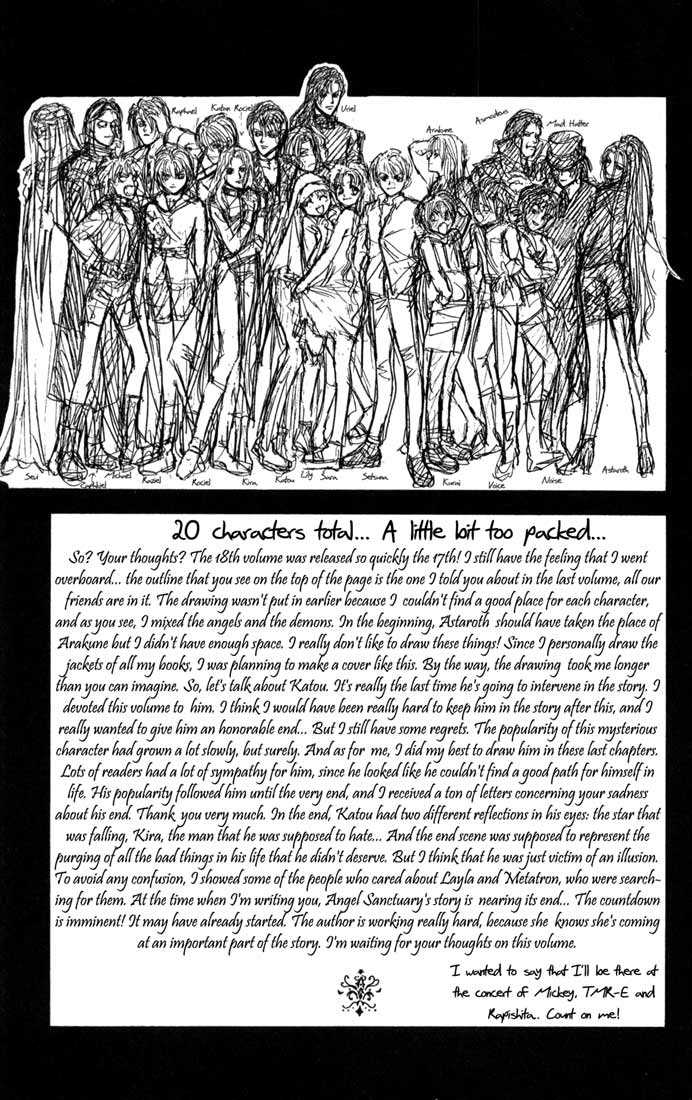 Raphael
Katan Rociel
Uriel
Arakune
Asmodeus
Mad Hatter
Sevi
Michael
Raziel
Rociel
Kira
Katou
Lily
Sara
Setsuna
Kurai
Voice
Noise
Astaroth
20 characters total... A little bit too packed...
So? Your thoughts? The 18th volume was released so quickly the 17th! I still have the feeling that I went
overboard... the outline that you see on the top of the page is the one I told you about in the last volume, all our
friends are in it. The drawing wasn't put in earlier because I couldn't find a good place for each character,
and as you see, I mixed the angels and the demons. In the beginning, Astaroth should have taken the place of
Arakune but I didn't have enough space. I really don't like to draw these things! Since I personally draw the
jackets of all my books, I was planning to make a cover like this. By the way, the drawing took me longer
than you can imagine. So, let's talk about Katou. It's really the last time he's going to intervene in the story. I
devoted this volume to him. I think I would have been really hard to keep him in the story after this, and I
really wanted to give him an honorable end... But I still have some regrets. The popularity of this mysterious
character had grown a lot slowly, but surely. And as for me, I did my best to draw him in these last chapters.
Lots of readers had a lot of sympathy for him, since he looked like he couldn't find a good path for himself in
life. His popularity followed him until the very end, and I received a ton of letters concerning your sadness
about his end. Thank you very much. In the end, Katou had two different reflections in his eyes: the star that
was falling, Kira, the man that he was supposed to hate... And the end scene was supposed to represent the
purging of all the bad things in his life that he didn't deserve. But I think that he was just victim of an illusion.
To avoid any confusion, I showed some of the people who cared about Layla and Metatron, who were search-
ing for them. At the time when I'm writing you, Angel Sanctuary's story is nearing its end... The countdown
is imminent! It may have already started. The author is working really hard, because she knows she's coming
at an important part of the story. I'm waiting for your thoughts on this volume.
I wanted to say that I'll be there at
the concert of Mickey, TMR-E and
Rapishita.. Count on me!